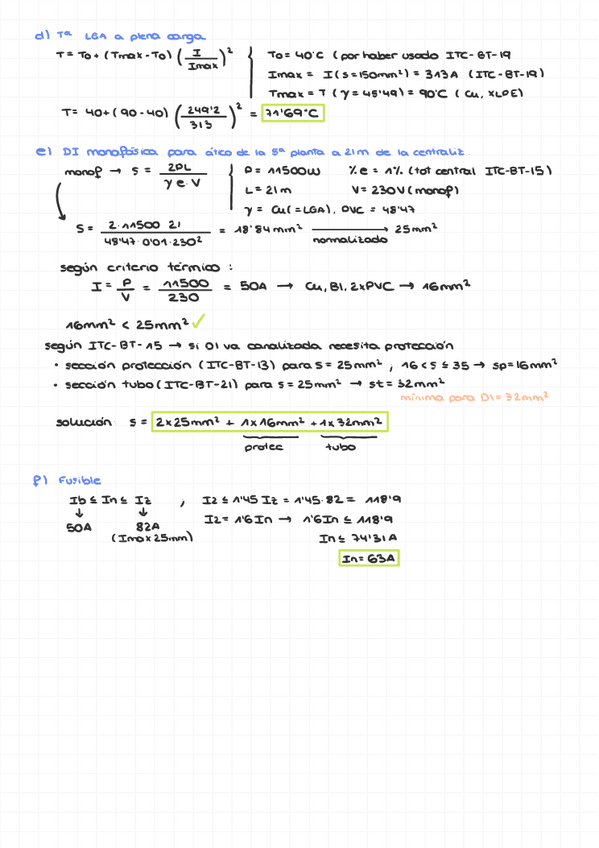 d) Tª LGA a plena carga
T = To + (Tmax - To) (I / Imax)² To = 40°C (por haber usado ITC-BT-19
Imax = I (s=150mm²) = 313A (ITC-BT-19)
Tmax = T (γ = 45'49) = 90°C (Cu, XLPE)
T = 40 + (90 - 40) (249'2 / 313)² = 71'69°C
e) DI monofásica para ático de la 5ª planta a 21m de la centraliz.
monof → S = 2PL / γ e V P = 11500W %e = 1% (tot central ITC-BT-15)
L = 21m V = 230V (monof)
γ = Cu (=LGA), PVC = 48'47
S = 2·11500 21 / 48'47·0'01·230² = 18'84mm² → 25mm²
normalizado
según criterio térmico :
I = P / V = 11500 / 230 = 50A → Cu, B1, 2xPVC → 16mm²
16mm² < 25mm² ✓
según ITC-BT-15 → si DI va canalizada necesita protección
• sección protección (ITC-BT-13) para s = 25mm² , 16 < s ≤ 35 → sp = 16mm²
• sección tubo (ITC-BT-21) para s = 25mm² → st = 32mm²
mínima para DI = 32mm²
solución S = 2x25mm² + 1x16mm² + 1x32mm²
protec tubo
f) Fusible
Ib ≤ In ≤ Iz , I2 ≤ 1'45 Iz = 1'45·82 = 118'9
↓ ↓ I2 = 1'6In → 1'6In ≤ 118'9
50A 82A In ≤ 74'31A
(Imax 25mm)
In = 63A